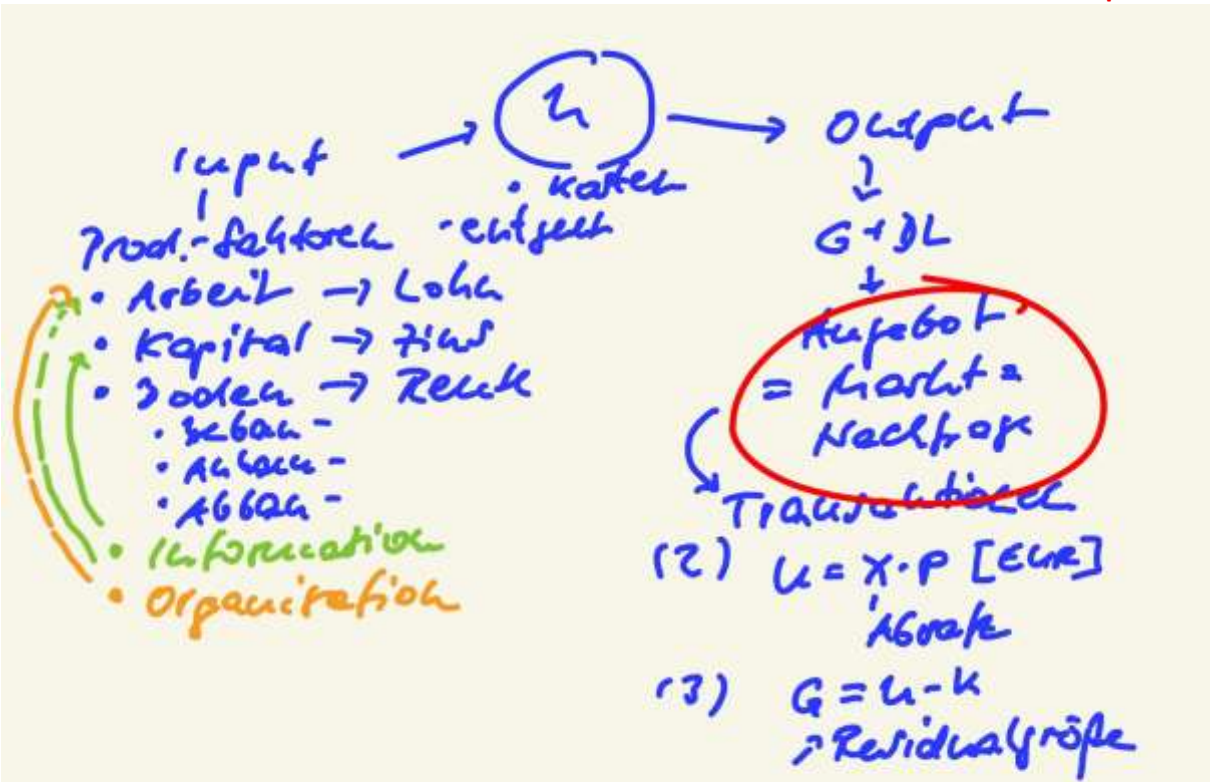 U
Input → → Output
• Kosten
Prod.-faktoren - entgelt
G + DL
• Arbeit → Lohn
• Kapital → Zins
• Boden → Rente
• Anbau -
• Abbau -
• Information
• Organisation
Angebot
= Markt =
Nachfrage
Transaktionen
(2) U = X · P [EUR]
Absatz
(3) G = U - K
Residualgröße